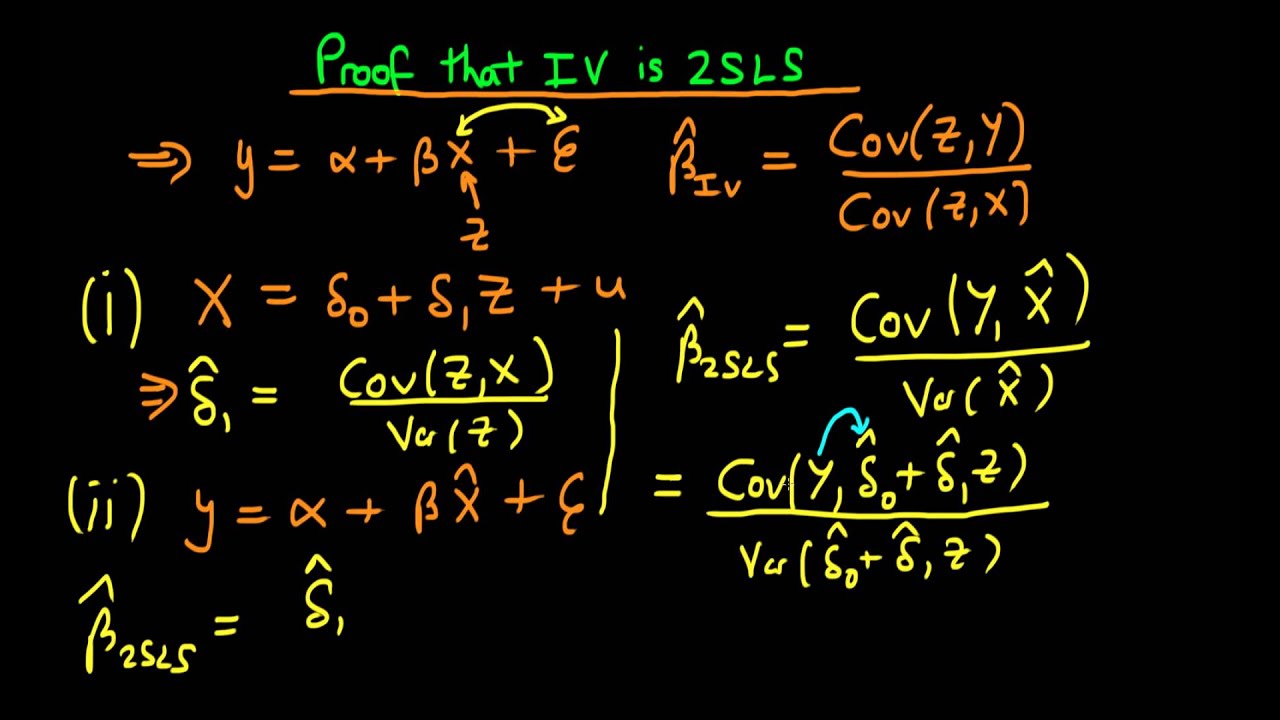 Proof that IV is 2SLS
⇒ y = α + βx + ε
z
β̂_IV = Cov(Z,Y) / Cov(Z,X)
(i) X = δ₀ + δ₁Z + u
⇒ δ̂₁ = Cov(Z,X) / Var(Z)
(ii) y = α + βX̂ + ε
β̂_2SLS = δ̂₁
β̂_2SLS = Cov(Y, X̂) / Var(X̂)
= Cov(Y, δ̂₀ + δ̂₁Z) / Var(δ̂₀ + δ̂₁Z)